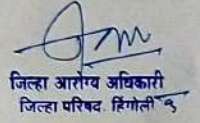 जिल्हा आरोग्य अधिकारी
जिल्हा परिषद. हिंगोली